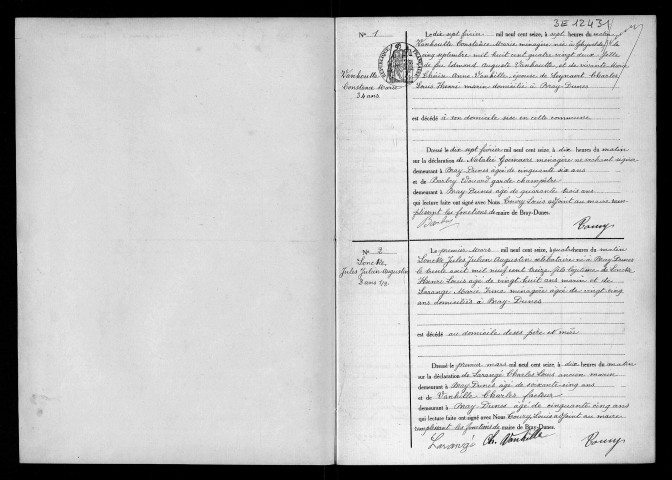 3E 12431
N° 1
Vanhoutte
Constance Marie
34 ans
Le dix sept février mil neuf cent seize, à sept heures du matin
Vanhoutte Constance Marie ménagère née à Ghyvelde le
cinq septembre mil huit cent quatre vingt deux fille
de feu Edmond Auguste Vanhoutte, et de vivante Marie
Anne Vanhille, épouse de Charles
Louis Henri marin domiciliée à Bray-Dunes
est décédé à son domicile sise en cette commune
Dressé le dix sept février mil neuf cent seize, à dix heures du matin
sur la déclaration de Natalie ménagère ne sachant signer
demeurant à Bray Dunes âgée de cinquante six ans
et de Barbry Edouard garde champêtre
demeurant à Bray-Dunes âgé de quarante trois ans
qui lecture faite ont signé avec Nous Coury Louis adjoint au maire rem-
plissant les fonctions de maire de Bray-Dunes.
N° 2
Loncke
Jules Julien Augustin
3 ans 1/2
Le premier Mars mil neuf cent seize, à quatre heures du matin
Loncke Jules Julien Augustin célibataire né à Bray Dunes
le trente août mil neuf cent treize fils légitime de Loncke
Henri Louis âgé de vingt huit ans marin et de
Larangé Marie ménagère âgée de vingt cinq
ans domiciliés à Bray Dunes
est décédé au domicile de ses père et mère
Dressé le premier mars mil neuf cent seize, à dix heures du matin
sur la déclaration de Larangé Charles Louis ancien marin
demeurant à Bray Dunes âgé de soixante cinq ans
et de Vanhille Charles facteur
demeurant à Bray Dunes âgé de cinquante cinq ans
qui lecture faite ont signé avec Nous Coury Louis adjoint au maire
remplissant les fonctions de maire de Bray-Dunes.
Larangé Ch. Vanhille Coury